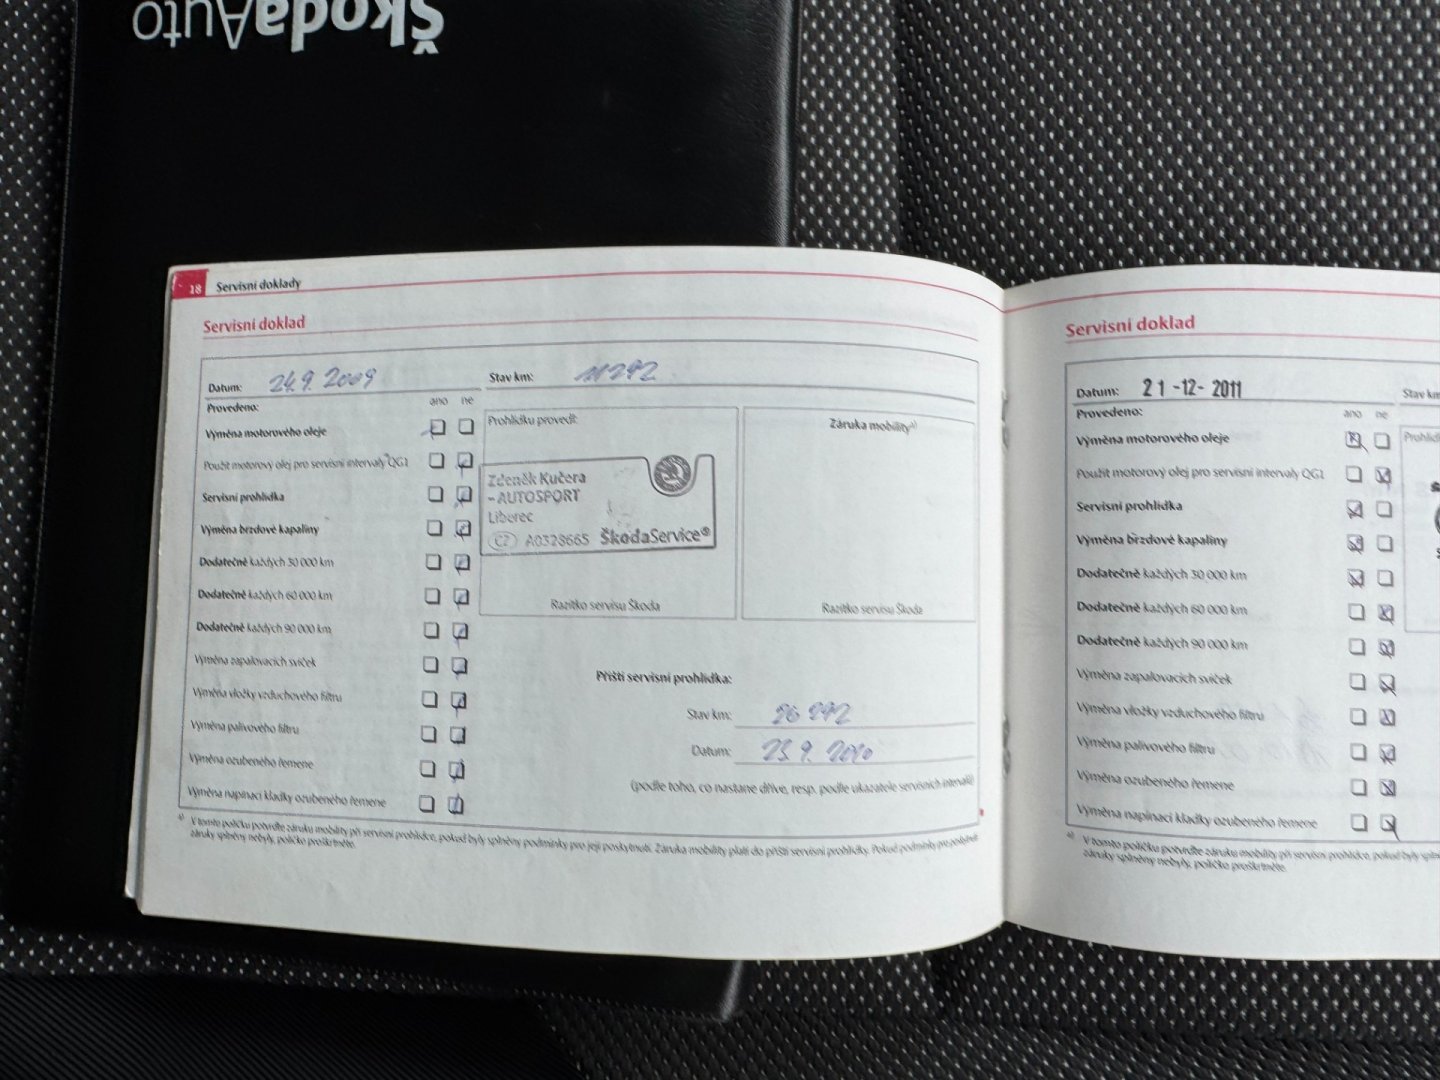 ŠkodaAuto
18 Servisní doklady
Servisní doklad
Datum: 24.9. 2009 Stav km: 11 292
Provedeno: ano ne
Výměna motorového oleje
Použit motorový olej pro servisní intervaly QG1
Servisní prohlídka
Výměna brzdové kapaliny
Dodatečně každých 30 000 km
Dodatečně každých 60 000 km
Dodatečně každých 90 000 km
Výměna zapalovacích svíček
Výměna vložky vzduchového filtru
Výměna palivového filtru
Výměna ozubeného řemene
Výměna napínací kladky ozubeného řemene
Prohlídku provedl:
Zdeněk Kučera
- AUTOSPORT
Liberec
CZ A0328665 ŠkodaService®
Razítko servisu Škoda
Záruka mobility a)
Razítko servisu Škoda
Příští servisní prohlídka:
Stav km: 26 292
Datum: 23.9. 2010
(podle toho, co nastane dříve, resp. podle ukazatele servisních intervalů)
a) V tomto políčku potvrďte záruku mobility při servisní prohlídce, pokud byly splněny podmínky pro její poskytnutí. Záruka mobility platí do příští servisní prohlídky. Pokud podmínky pro poskytnutí
záruky splněny nebyly, políčko proškrtněte.
Servisní doklad
Datum: 21 -12- 2011 Stav km
Provedeno: ano ne
Výměna motorového oleje
Použit motorový olej pro servisní intervaly QG1
Servisní prohlídka
Výměna brzdové kapaliny
Dodatečně každých 30 000 km
Dodatečně každých 60 000 km
Dodatečně každých 90 000 km
Výměna zapalovacích svíček
Výměna vložky vzduchového filtru
Výměna palivového filtru
Výměna ozubeného řemene
Výměna napínací kladky ozubeného řemene
a) V tomto políčku potvrďte záruku mobility při servisní prohlídce, pokud byly
záruky splněny nebyly, políčko proškrtněte.